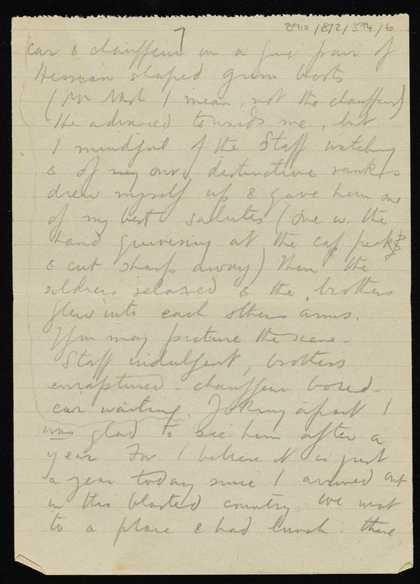 7
car & chauffeur in a fine pair of
Hessian shaped gum boots
(Mr Nash I mean, not the chauffeur)
He advanced towards me, but
I mindful of the Staff watching
& of my own distinctive rank
drew myself up & gave him one
of my best salutes (one w. the
hand quivering at the cap peak
& cut sharp away) Then the
soldiers relaxed & the brothers
flew into each others arms.
You may picture the scene -
Staff indulgent, brothers
enraptured - chauffeur bored -
car waiting. Joking apart I
was glad to see him after a
year For I believe it is just
a year today since I arrived out
in this blasted country We went
to a place & had lunch. there